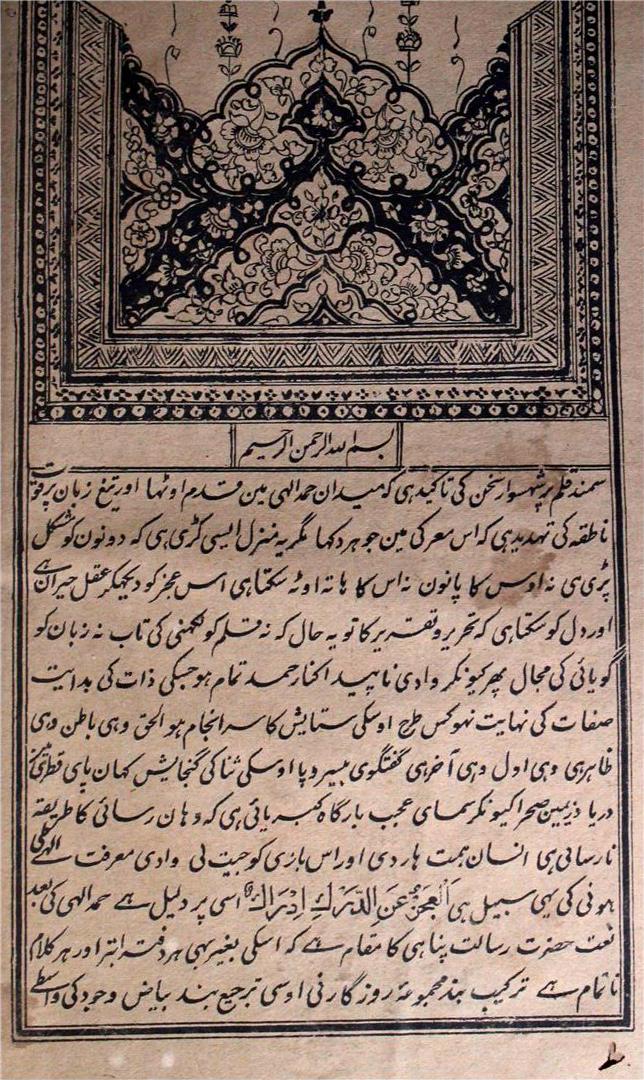 بسم الله الرحمن الرحیم
سمند قلم پر شہسوار سخن کی تاکید ہی کہ میدان حمد الہی مین قدم اوٹھا اور تیغ زبان پر قوت
ناطقہ کی تہدید ہی کہ اس معرکی مین جوہر دکہا مگر یہ منزل ایسی کڑی ہی کہ دونون کو مشکل
پڑی ہی نہ اوس کا پانون نہ اس کا ہاتہ اوٹہ سکتا ہی اس عجز کو دیکہکر عقل حیران ہے
اور دل کو سکتا ہی کہ تحریر و تقریر کا تو یہ حال کہ نہ قلم کو لکہنی کی تاب نہ زبان کو
گویائی کی مجال پھر کیونکر وادی ناپیدا کنار حمد تمام ہو جسکی ذات کی بدایت
صفات کی نہایت نہو کس طرح اوسکی ستایش کا سر انجام ہو الحق وہی باطن وہی
ظاہر ہی وہی اول وہی آخر ہی گفتگوی بیسر و پا اوسکی ثنا کی گنجایش کہان پای قطری مین
دریا ذریمین صحرا کیونکر سمای عجب بارگاہ کبریائی ہی کہ وہان رسائی کا طریقہ
نارسائی ہی انسان ہمت ہار دی اور اس بازی کو جیت لی وادی معرفت الہی کی طی
ہونی کی یہی سبیل ہی اَلْعَجْزُ عَنِ الدَّرْكِ اِدْرَاكٌ اسی پر دلیل ہے حمد الہی کی بعد
نعت حضرت رسالت پناہی کا مقام ہے کہ اسکی بغیر یہی ہر دفتر ابتر اور ہر کلام
ناتمام ہے ترکیب بند مجموعۂ روزگار نی اوسی ترجیع بند بیاض وجود کی واسطے